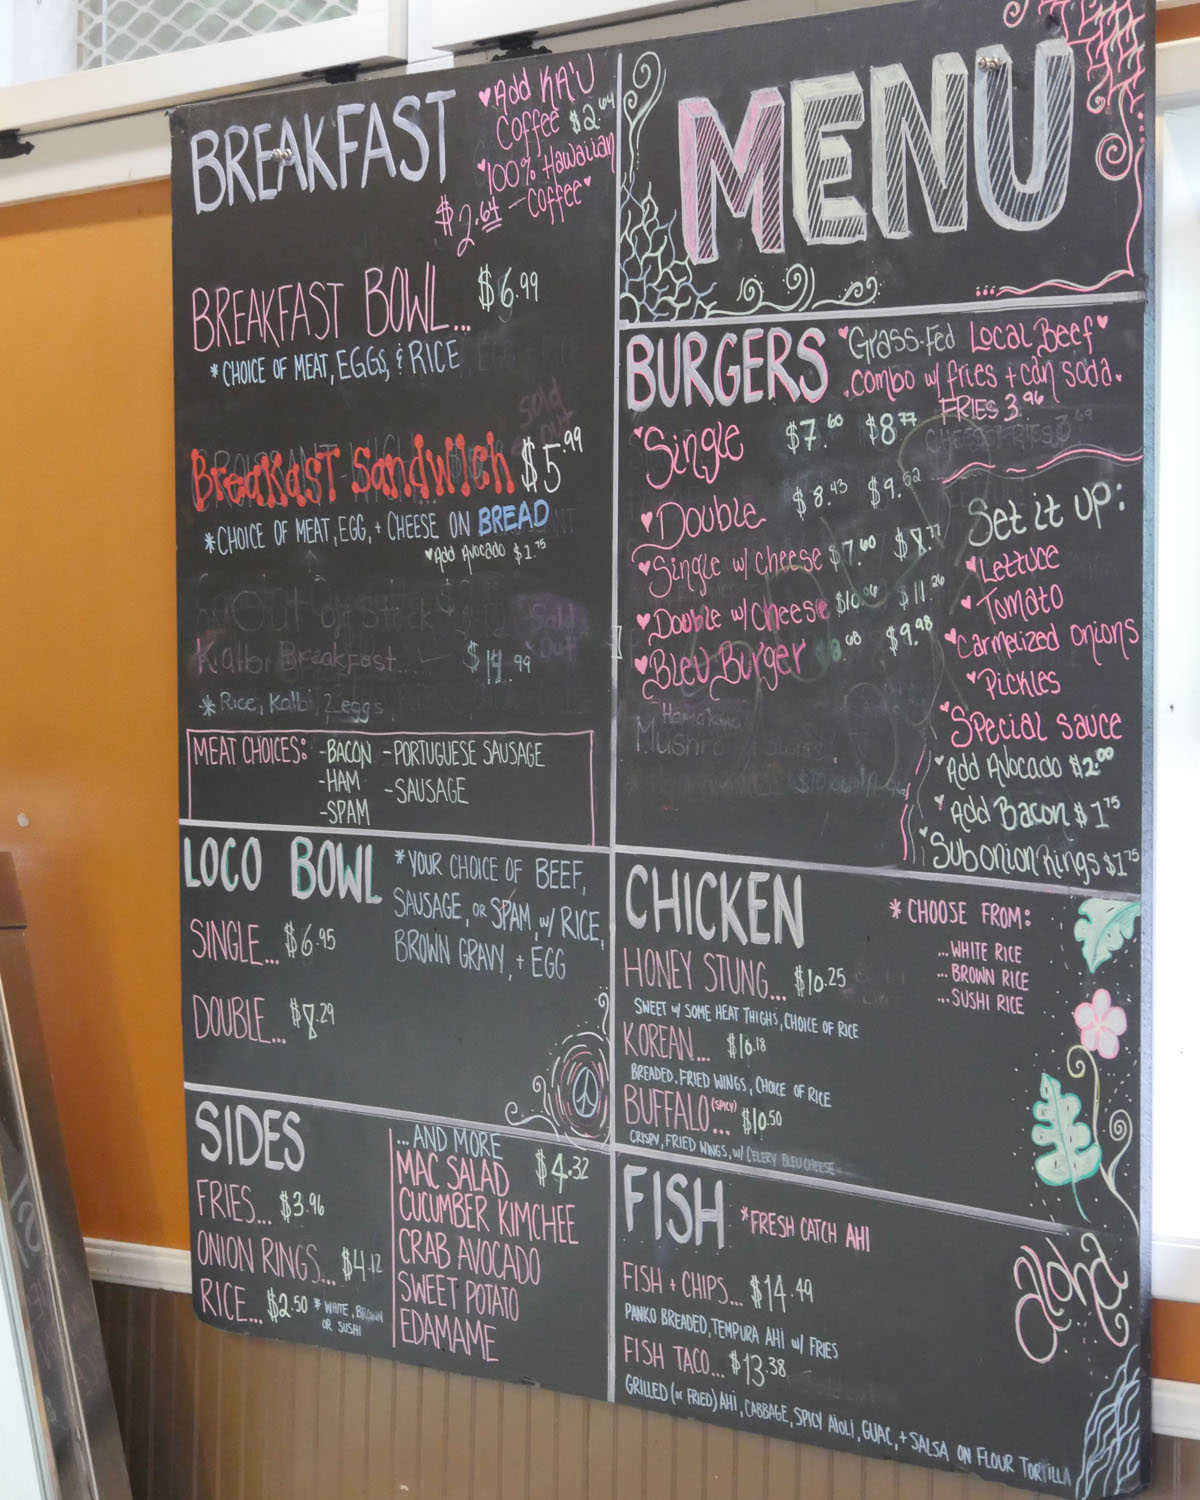 BREAKFAST
♥Add KA'U
Coffee $2.64
*100% Hawaiian
$2.64 — Coffee♥
BREAKFAST BOWL... $6.99
*CHOICE OF MEAT, EGGS, & RICE
Breakast Sandwich $5.99
*CHOICE OF MEAT, EGG, + CHEESE ON BREAD
♥Add Avocado $1.75
Out of Stock
Sold Out
Kalbi Breakfast.... $14.99
*Rice, Kalbi, 2 eggs
MEAT CHOICES: -BACON -PORTUGUESE SAUSAGE
-HAM -SAUSAGE
-SPAM
LOCO BOWL
*YOUR CHOICE OF BEEF,
SAUSAGE, OR SPAM, w/ RICE,
BROWN GRAVY, + EGG
SINGLE... $6.95
DOUBLE... $8.29
SIDES
FRIES... $3.96
ONION RINGS... $4.12
RICE... $2.50 *WHITE, BROWN
OR SUSHI
...AND MORE $4.32
MAC SALAD
CUCUMBER KIMCHEE
CRAB AVOCADO
SWEET POTATO
EDAMAME
MENU
BURGERS
♥Grass-Fed Local Beef♥
.combo w/ fries + can soda.
FRIES 3.96
CHEESE FRIES
♥Single $7.60 $8.77
♥Double $8.43 $9.62
♥Single w/ cheese $7.60 $8.77
♥Double w/ cheese $10.06 $11.26
♥Bleu Burger .68 $9.98
Hamakua
Mushroom
Set it up:
♥Lettuce
♥Tomato
♥Carmelized onions
♥Pickles
♥Special sauce
♥Add Avocado $2.00
♥Add Bacon $1.75
♥Sub onion rings $1.75
CHICKEN
*CHOOSE FROM:
...WHITE RICE
...BROWN RICE
...SUSHI RICE
HONEY STUNG... $10.25
SWEET w/ SOME HEAT THIGHS, CHOICE OF RICE
KOREAN... $10.18
BREADED, FRIED WINGS, CHOICE OF RICE
BUFFALO (SPICY)... $10.50
CRISPY, FRIED WINGS, w/ CELERY BLEU CHEESE
FISH *FRESH CATCH AHI
FISH + CHIPS... $14.49
PANKO BREADED, TEMPURA AHI w/ FRIES
FISH TACO... $13.38
GRILLED (or FRIED) AHI, CABBAGE, SPICY AIOLI, GUAC, + SALSA ON FLOUR TORTILLA
aloha